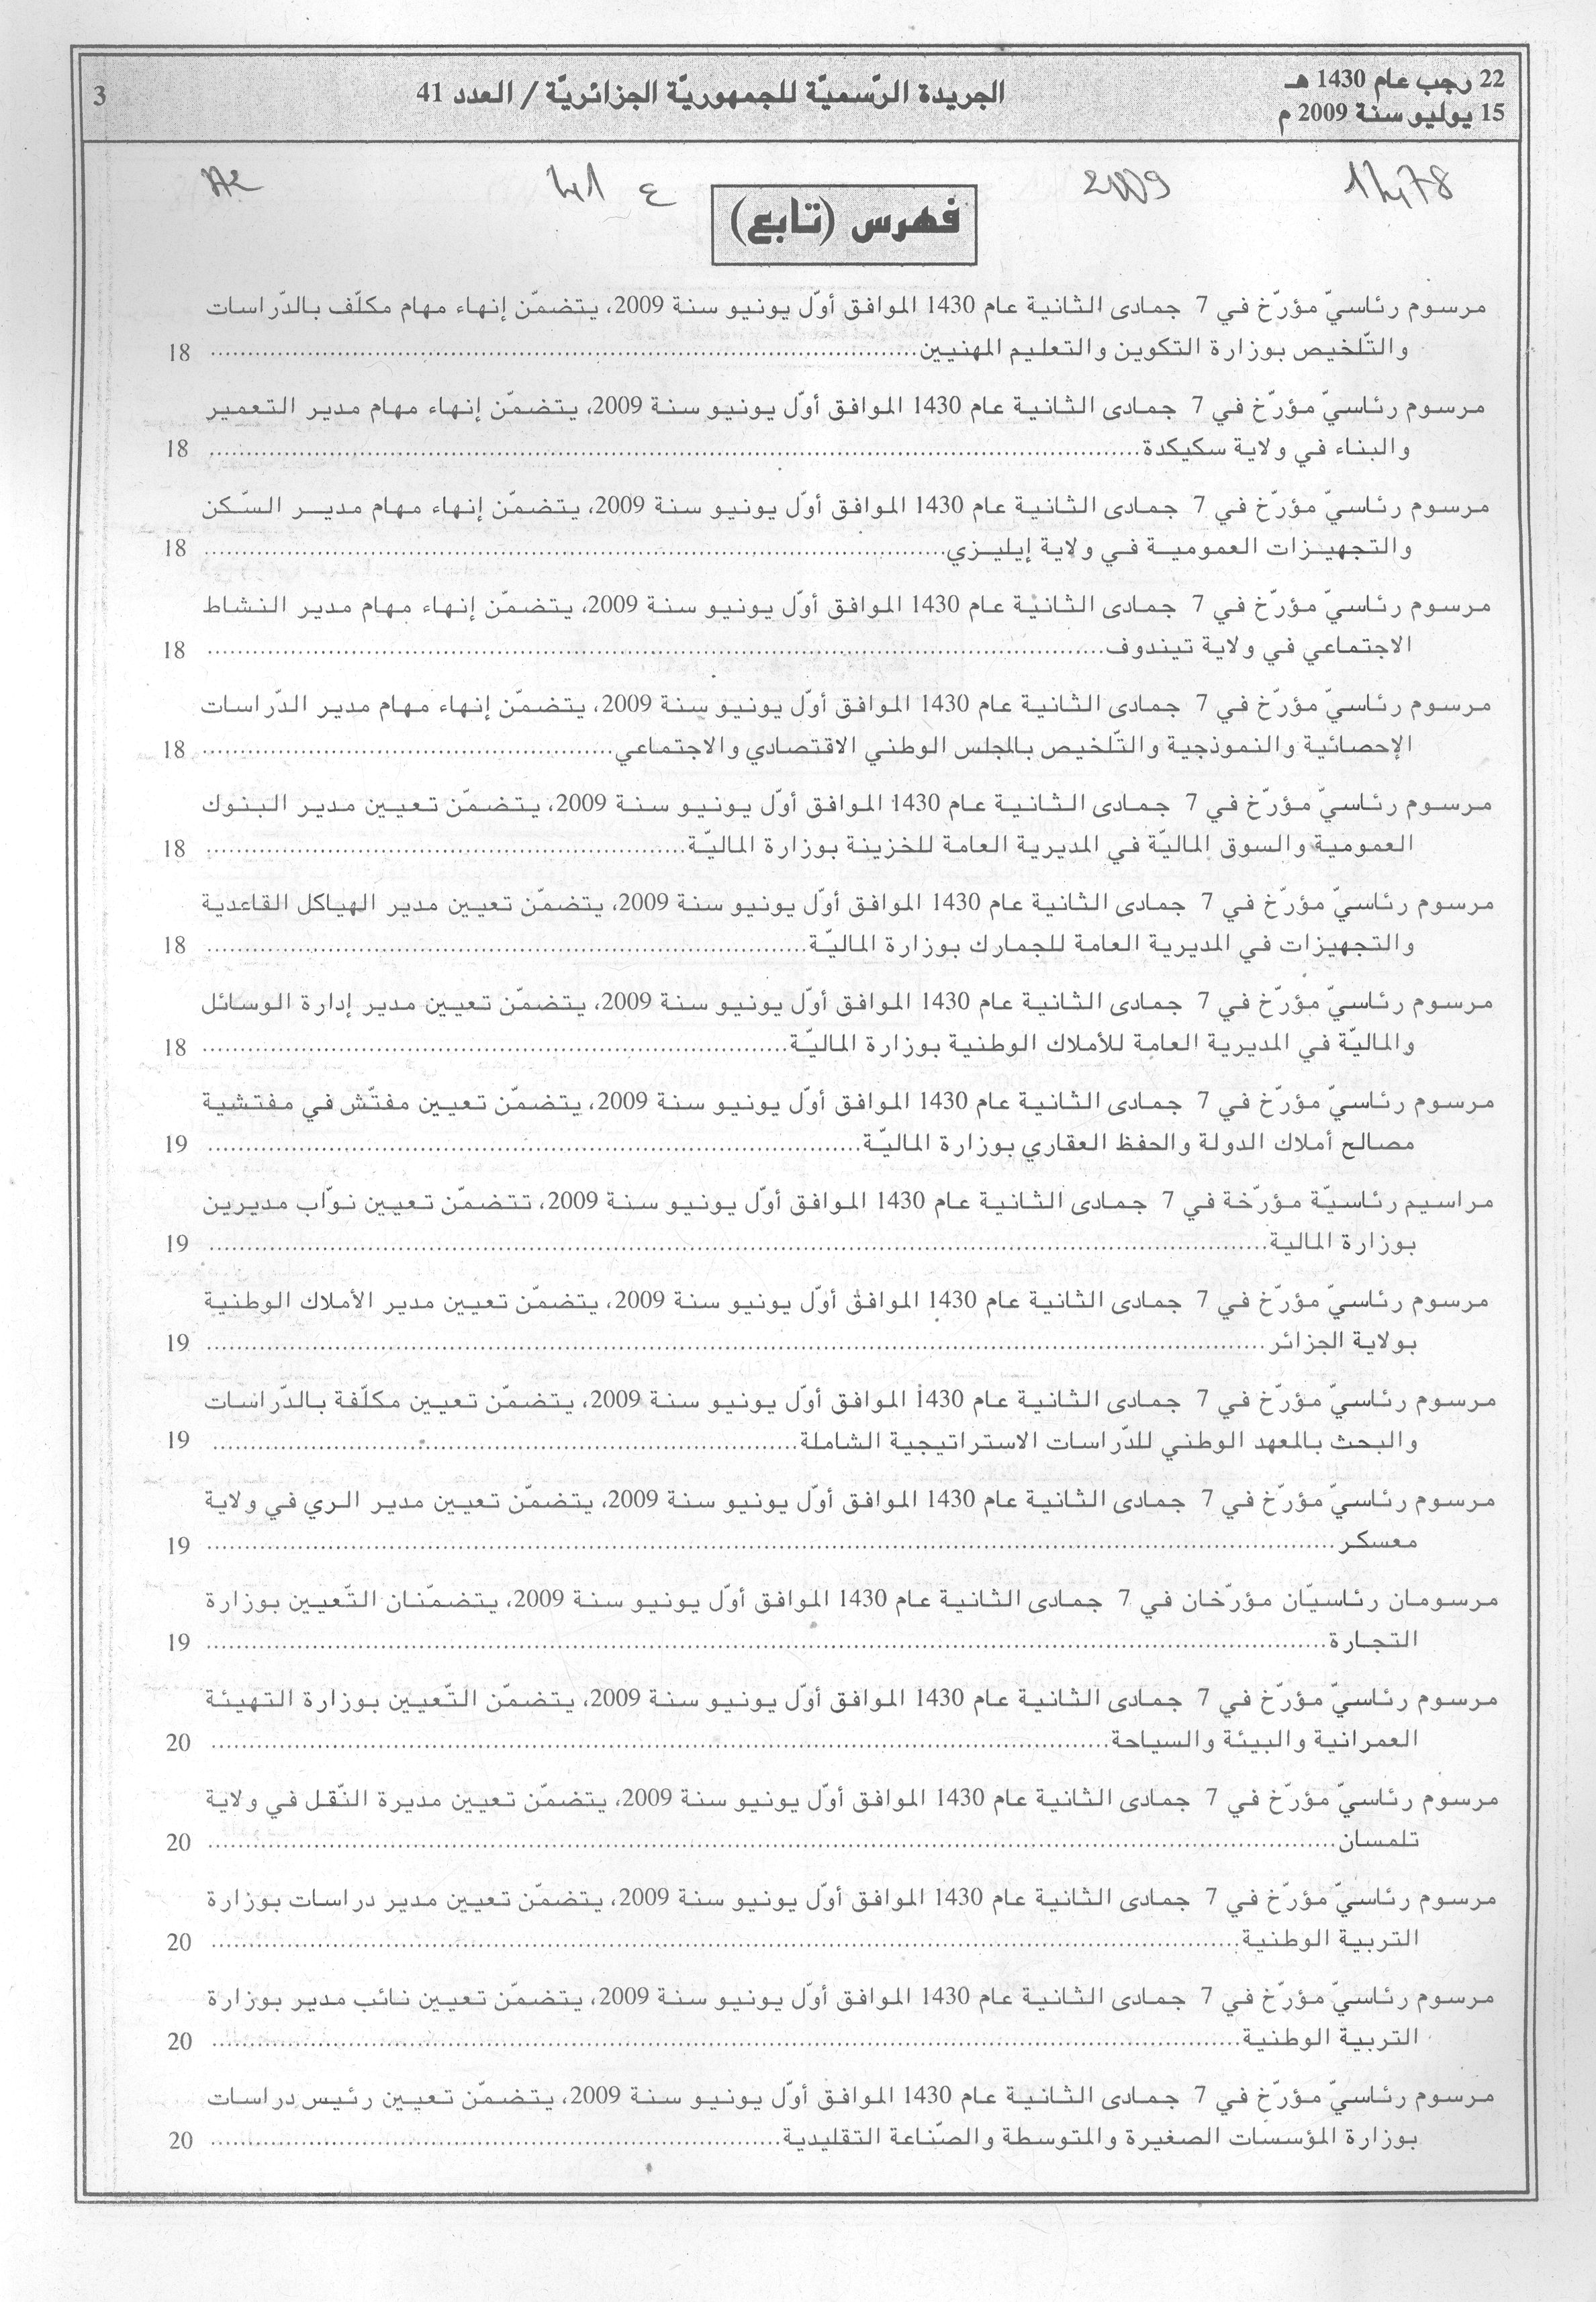 22 رجب عام 1430 هـ
15 يوليو سنة 2009 م
الجريدة الرّسميّة للجمهوريّة الجزائريّة / العدد 41
3
1478
2009
ع 41
فهرس (تابع)
مرسوم رئاسيّ مؤرّخ في 7 جمادى الثانية عام 1430 الموافق أوّل يونيو سنة 2009، يتضمّن إنهاء مهام مكلّف بالدّراسات
والتّلخيص بوزارة التكوين والتعليم المهنيين.......... 18
مرسوم رئاسيّ مؤرّخ في 7 جمادى الثانية عام 1430 الموافق أوّل يونيو سنة 2009، يتضمّن إنهاء مهام مدير التعمير
والبناء في ولاية سكيكدة.......... 18
مرسوم رئاسيّ مؤرّخ في 7 جمادى الثانية عام 1430 الموافق أوّل يونيو سنة 2009، يتضمّن إنهاء مهام مديـر السّكن
والتجهيزات العمومية في ولاية إيليزي.......... 18
مرسوم رئاسيّ مؤرّخ في 7 جمادى الثانية عام 1430 الموافق أوّل يونيو سنة 2009، يتضمّن إنهاء مهام مدير النشاط
الاجتماعي في ولاية تيندوف.......... 18
مرسوم رئاسيّ مؤرّخ في 7 جمادى الثانية عام 1430 الموافق أوّل يونيو سنة 2009، يتضمّن إنهاء مهام مدير الدّراسات
الإحصائية والنموذجية والتّلخيص بالمجلس الوطني الاقتصادي والاجتماعي.......... 18
مرسوم رئاسيّ مؤرّخ في 7 جمادى الثانية عام 1430 الموافق أوّل يونيو سنة 2009، يتضمّن تعيين مدير البنوك
العمومية والسوق الماليّة في المديرية العامة للخزينة بوزارة الماليّة.......... 18
مرسوم رئاسيّ مؤرّخ في 7 جمادى الثانية عام 1430 الموافق أوّل يونيو سنة 2009، يتضمّن تعيين مدير الهياكل القاعدية
والتجهيزات في المديرية العامة للجمارك بوزارة الماليّة.......... 18
مرسوم رئاسيّ مؤرّخ في 7 جمادى الثانية عام 1430 الموافق أوّل يونيو سنة 2009، يتضمّن تعيين مدير إدارة الوسائل
والماليّة في المديرية العامة للأملاك الوطنية بوزارة الماليّة.......... 18
مرسوم رئاسيّ مؤرّخ في 7 جمادى الثانية عام 1430 الموافق أوّل يونيو سنة 2009، يتضمّن تعيين مفتّش في مفتشية
مصالح أملاك الدولة والحفظ العقاري بوزارة الماليّة.......... 19
مراسيم رئاسيّة مؤرّخة في 7 جمادى الثانية عام 1430 الموافق أوّل يونيو سنة 2009، تتضمّن تعيين نوّاب مديرين
بوزارة المالية.......... 19
مرسوم رئاسيّ مؤرّخ في 7 جمادى الثانية عام 1430 الموافق أوّل يونيو سنة 2009، يتضمّن تعيين مدير الأملاك الوطنية
بولاية الجزائر.......... 19
مرسوم رئاسيّ مؤرّخ في 7 جمادى الثانية عام 1430 الموافق أوّل يونيو سنة 2009، يتضمّن تعيين مكلّفة بالدّراسات
والبحث بالمعهد الوطني للدّراسات الاستراتيجية الشاملة.......... 19
مرسوم رئاسيّ مؤرّخ في 7 جمادى الثانية عام 1430 الموافق أوّل يونيو سنة 2009، يتضمّن تعيين مدير الري في ولاية
معسكر.......... 19
مرسومان رئاسيّان مؤرّخان في 7 جمادى الثانية عام 1430 الموافق أوّل يونيو سنة 2009، يتضمّنان التّعيين بوزارة
التجارة.......... 19
مرسوم رئاسيّ مؤرّخ في 7 جمادى الثانية عام 1430 الموافق أوّل يونيو سنة 2009، يتضمّن التّعيين بوزارة التهيئة
العمرانية والبيئة والسياحة.......... 20
مرسوم رئاسيّ مؤرّخ في 7 جمادى الثانية عام 1430 الموافق أوّل يونيو سنة 2009، يتضمّن تعيين مديرة النّقل في ولاية
تلمسان.......... 20
مرسوم رئاسيّ مؤرّخ في 7 جمادى الثانية عام 1430 الموافق أوّل يونيو سنة 2009، يتضمّن تعيين مدير دراسات بوزارة
التربية الوطنية.......... 20
مرسوم رئاسيّ مؤرّخ في 7 جمادى الثانية عام 1430 الموافق أوّل يونيو سنة 2009، يتضمّن تعيين نائب مدير بوزارة
التربية الوطنية.......... 20
مرسوم رئاسيّ مؤرّخ في 7 جمادى الثانية عام 1430 الموافق أوّل يونيو سنة 2009، يتضمّن تعيين رئيس دراسات
بوزارة المؤسسات الصغيرة والمتوسطة والصّناعة التقليدية.......... 20